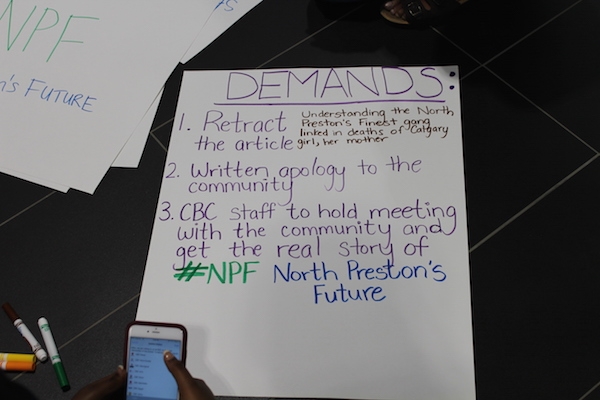 NPF
n's FUTURE
FS
DEMANDS:
1. Retract
the article
Understanding the North
Preston's Finest gang
linked in deaths of Calgary
girl, her mother
2. Written apology to the
community
3. CBC staff to hold meeting
with the community and
get the real story of
#NPF North Preston's
Future